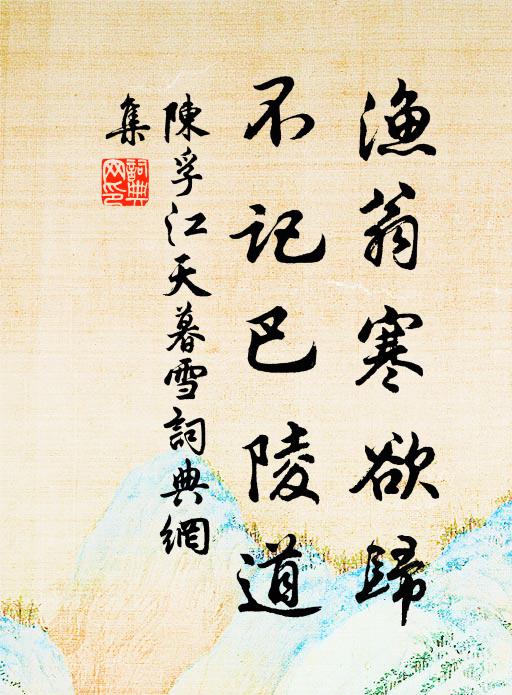 漁翁寒欲歸
不記巴陵道
陳孚江天暮雪詞典網
集
詞典網印